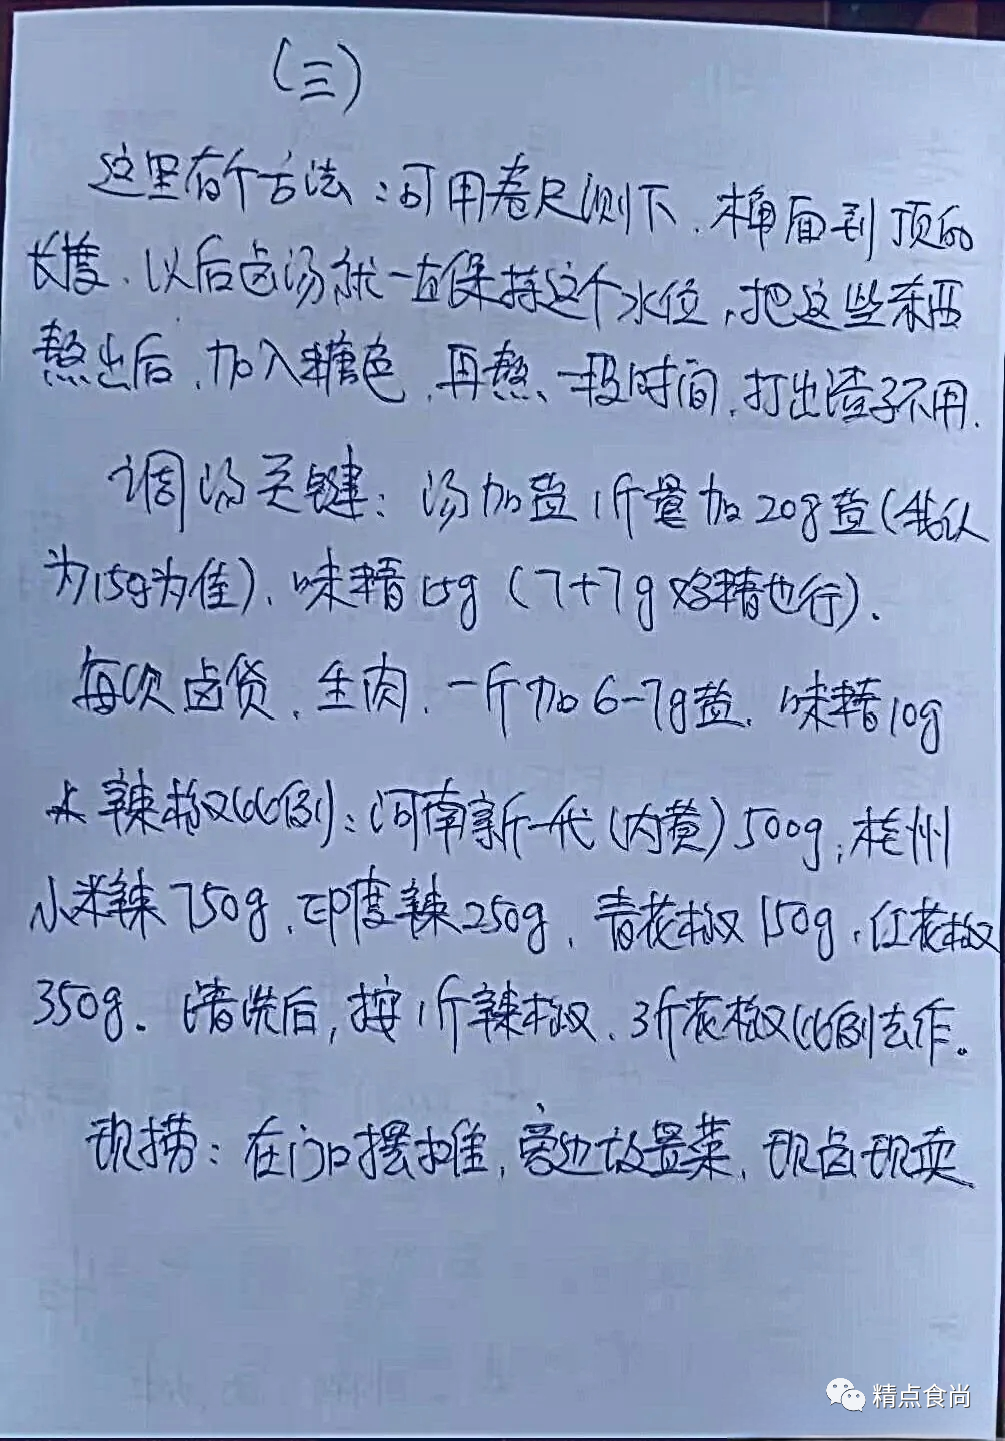 (三)
这里有个方法:可用卷尺测下,桶面到顶的
长度,以后卤汤就一直保持这个水位,把这些东西
熬出后,加入糖色,再熬一段时间,打出渣子不用.
调汤关键:汤加盐1斤量加20g盐(我认
为15g为佳),味精15g(7+7g鸡精也行).
每次卤货,生肉,一斤加6-7g盐,味精10g
辣椒比例:河南新一代(内黄)500g,桂州
小米辣750g,印度辣250g,青花椒150g,红花椒
350g.清洗后,按1斤辣椒、3斤花椒比例去作。
现捞:在门口摆摊,旁边放置菜,现卤现卖
精点食尚